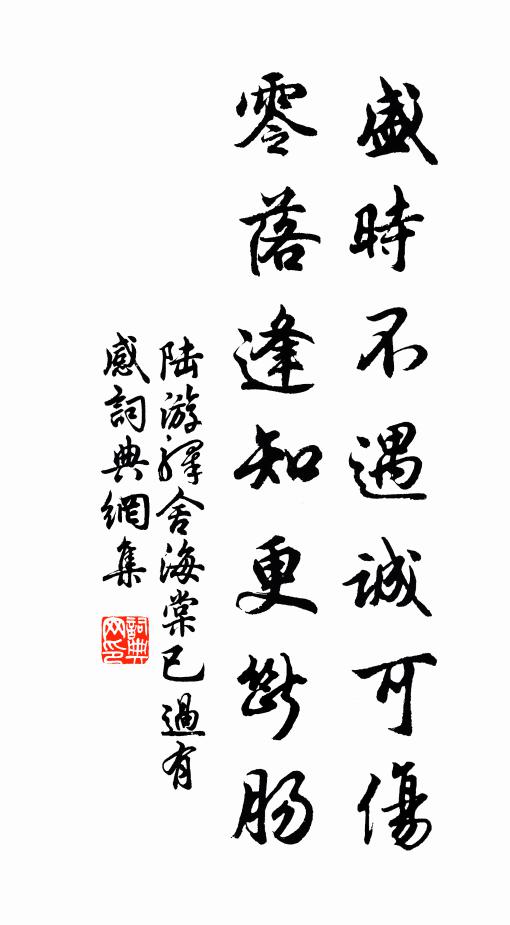 盛時不遇誠可傷
零落逢知更斷腸
陸游驛舍海棠已過有
感詞典網集
詞典
网印